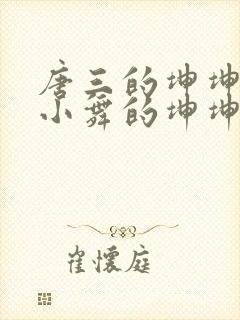 唐三的坤坤
小舞的坤坤
崔懷庭